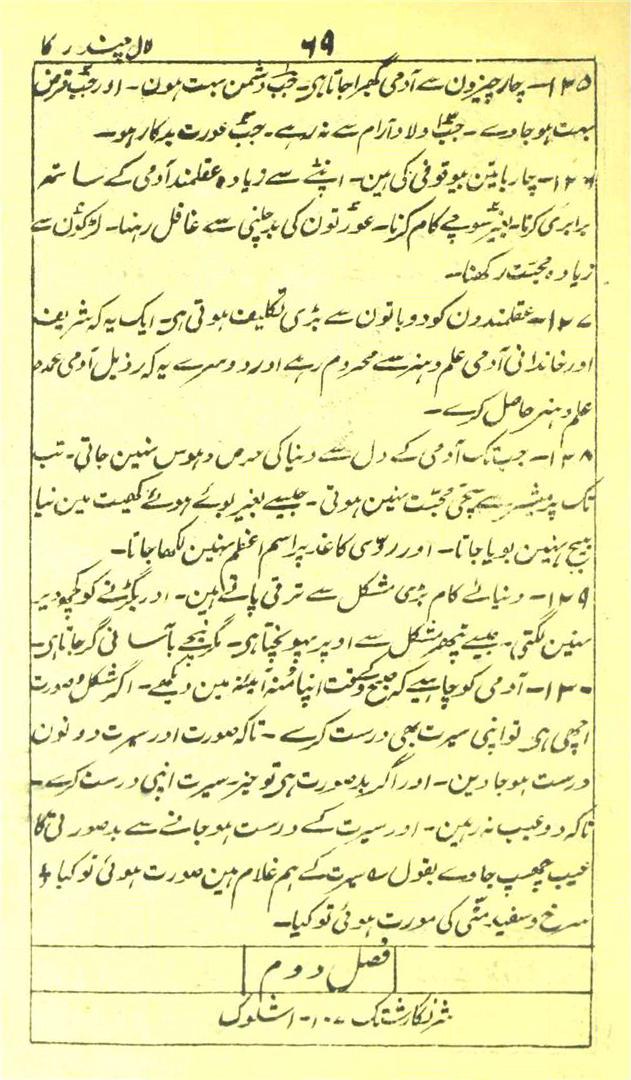 ۶۹ لال چندر کا
۱۲۵۔ چار چیزون سے آدمی گھبرا جاتا ہی۔ جب دشمن بہت ہون۔ اور جب قرض
بہت ہو جاوے۔ جب اولاد آرام سے نہ رہے۔ جب عورت بدکار ہو۔
۱۲۶۔ چار باتین بیوقوفی کی ہین۔ اپنے سے زیادہ عقلمند آدمی کے ساتھ
برابری کرنا۔ بغیر سوچے کام کرنا۔ عورتون کی بدچلنی سے غافل رہنا۔ لڑکون سے
زیادہ محبت رکھنا۔
۱۲۷۔ عقلمندون کو دو باتون سے بڑی تکلیف ہوتی ہی۔ ایک یہ کہ شریف
اور خاندانی آدمی علم و ہنر سے محروم رہے اور دوسرے یہ کہ رذیل آدمی عمدہ
علم و ہنر حاصل کرے۔
۱۲۸۔ جب تک آدمی کے دل سے دنیا کی حرص و ہوس نہین جاتی۔ تب
تک پرمیشر سے سچی محبت نہین ہوتی۔ جیسے بغیر بوئے ہوئے کھیت مین نیا
بیج نہین بویا جاتا۔ اور ردی کاغذ پر اسم اعظم نہین لکھا جاتا۔
۱۲۹۔ دنیا کے کام بڑی مشکل سے ترقی پاتے ہین۔ اور بگڑنے کو کچھ دیر
نہین لگتی۔ جیسے پتھر مشکل سے اوپر پہونچتا ہی۔ مگر نیچے بآسانی گر جاتا ہی۔
۱۳۰۔ آدمی کو چاہیے کہ صبح کے وقت اپنا منہ آئینہ مین دیکھے۔ اگر شکل و صورت
اچھی ہی تو اپنی سیرت بھی درست کرے۔ تاکہ صورت اور سیرت دونون
درست ہو جاوین۔ اور اگر بد صورت ہی تو خیر۔ سیرت اپنی درست کرے۔
تاکہ دو عیب نہ رہین۔ اور سیرت کے درست ہو جانے سے بد صورتی کا
عیب چھپ جاوے بقول ؎ سیرت کے ہم غلام ہین صورت ہوئی تو کیا ٭
سرخ و سفید مٹی کی مورت ہوئی تو کیا۔
فصل دوم
شرنگار شتک ۱۰۷۔ اشلوک